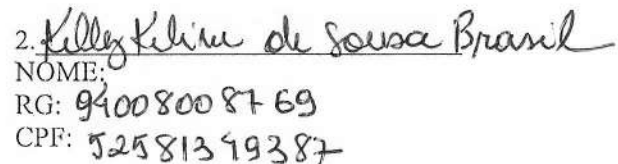 2. Kelly Keline de Sousa Brasil
NOME:
RG: 94008008769
CPF: 52581349387